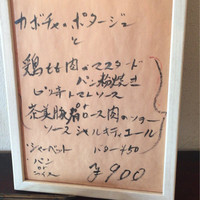 カボチャのポタージュ
と
鶏もも肉のマスタード
パン粉焼き
ピンキトマトソース
茶美豚肩ロース肉のソテー
ソースシャルキュティエール
・シャーベット バター¥50
・パン
or
ライス ¥900